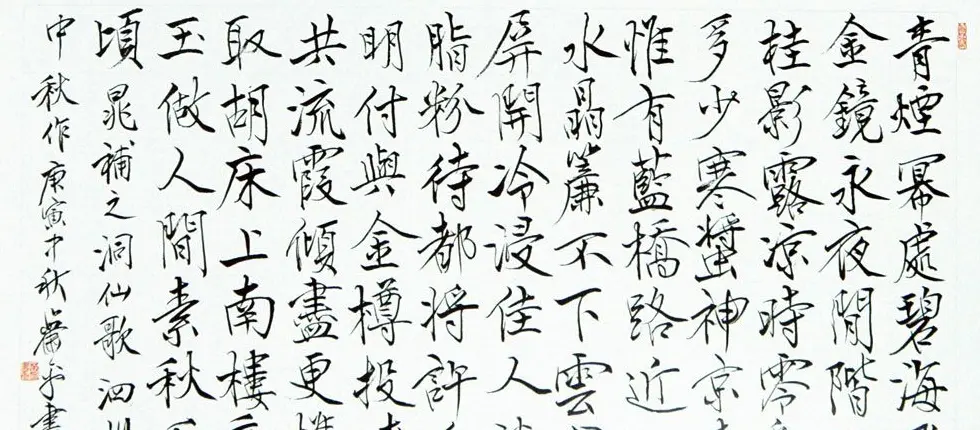 青煙冪處碧海
金鏡永夜閒階
桂影露凉時零
多少寒螿神京
惟有藍橋路近
水晶簾不下雲
屏開冷浸佳人
脂粉待都將許
明付與金樽投
共流霞傾盡更
取胡床上南樓
玉做人間素秋
頃晁補之洞仙歌泗
中秋作庚寅中秋